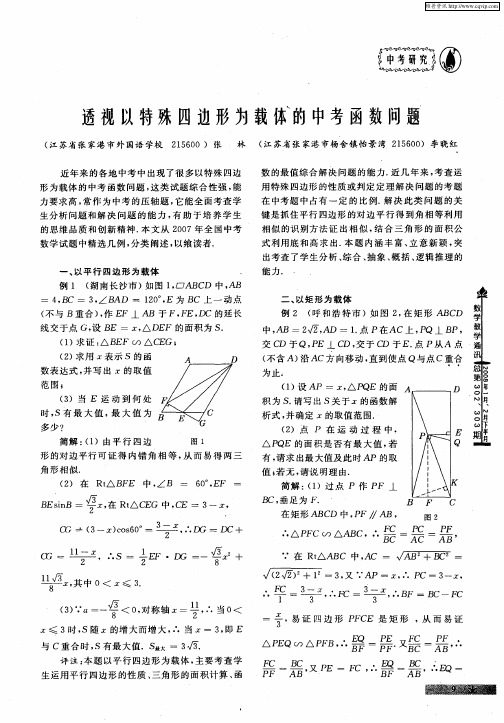 维普资讯 http://www.cqvip.com
中考研究
透视以特殊四边形为载体的中考函数问题
(江苏省张家港市外国语学校 215600) 张 林 (江苏省张家港市杨舍镇怡景湾 215600) 李晓红
近年来的各地中考中出现了很多以特殊四边
形为载体的中考函数问题,这类试题综合性强,能
力要求高,常作为中考的压轴题,它能全面考查学
生分析问题和解决问题的能力,有助于培养学生
的思维品质和创新精神.本文从2007年全国中考
数学试题中精选几例,分类阐述,以飨读者.
一、以平行四边形为载体
例1 (湖南长沙市)如图1,□ABCD中,AB
=4,BC=3,∠BAD=120°,E为BC上一动点
(不与B重合),作EF⊥AB于F,FE,DC的延长
线交于点G,设BE=x,△DEF的面积为S.
(1)求证:△BEF∽△CEG;
(2)求用x表示S的函
数表达式,并写出x的取值
范围;
(3)当E运动到何处
时,S有最大值,最大值为
多少?
A D F B E C G
图1
简解:(1)由平行四边
形的对边平行可证得内错角相等,从而易得两三
角形相似.
(2)在Rt△BFE中,∠B=60°,EF=
BEsinB=√3/2x,在Rt△CEG中,CE=3-x,
CG=(3-x)cos60°=(3-x)/2,∴DG=DC+
CG=(11-x)/2,∴S=1/2EF·DG=-√3/8x²+
11√3/8x,其中0<x≤3.
(3)∵a=-√3/8<0,对称轴x=11/2,∴当0<
x≤3时,S随x的增大而增大,∴当x=3,即E
与C重合时,S有最大值.S最大=3√3.
评注:本题以平行四边形为载体,主要考查学
生运用平行四边形的性质、三角形的面积计算、函
数的最值综合解决问题的能力.近几年来,考查运
用特殊四边形的性质或判定定理解决问题的考题
在中考题中占有一定的比例.解决此类问题的关
键是抓住平行四边形的对边平行得到角相等利用
相似的识别方法证出相似,结合三角形的面积公
式利用底和高求出.本题内涵丰富、立意新颖,突
出考查了学生分析、综合、抽象、概括、逻辑推理的
能力.
二、以矩形为载体
例2 (呼和浩特市)如图2,在矩形ABCD
中,AB=2√2,AD=1.点P在AC上,PQ⊥BP,
交CD于Q,PE⊥CD,交于CD于E.点P从A点
(不含A)沿AC方向移动,直到使点Q与点C重合
为止.
(1)设AP=x,△PQE的面
积为S.请写出S关于x的函数解
析式,并确定x的取值范围.
(2)点P在运动过程中,
△PQE的面积是否有最大值,若
有,请求出最大值及此时AP的取
值,若无,请说明理由.
A D P E Q K B F C
图2
简解:(1)过点P作PF⊥
BC,垂足为F.
在矩形ABCD中,PF∥AB,
∴△PFC∽△ABC,∴FC/BC=PC/AC=PF/AB,
∵在Rt△ABC中,AC=√(AB²+BC²)=
√((2√2)²+1²=3,又∵AP=x,∴PC=3-x,
∴FC/1=(3-x)/3,∴FC=(3-x)/3,∴BF=BC-FC
=x/3,易证四边形PFCE是矩形,从而易证
△PEQ∽△PFB,∴EQ/BF=PE/PF.又FC/BC=PF/AB,∴
FC/PF=BC/AB,又PE=FC,∴EQ/BF=BC/AB,∴EQ=
数学教学通讯
总第302、303期
2008年1月、2月下半月
9